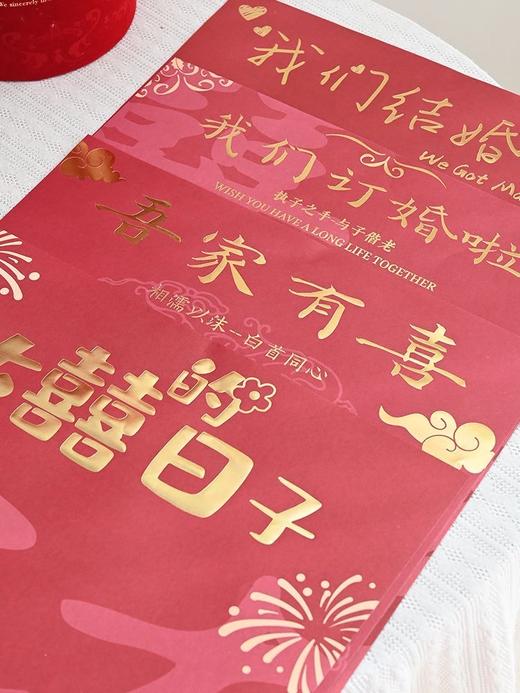 We sincerely in
我们结婚
We Got Ma
我们订婚啦
执子之手-与子偕老
WISH YOU HAVE A LONG LIFE TOGETHER
吾家有喜
相濡以沫-白首同心
大囍的
日子